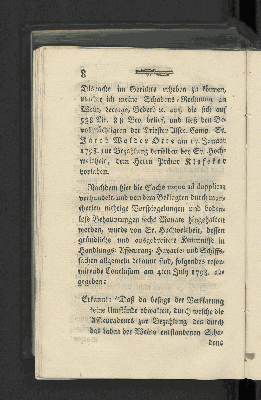 8
Dispache im Gerichte erheben zu können,
machte ich meine Schadens-Rechnung an
Wein, Leccage, Gebeth u. auf, die sich auf
938 Mk. 8 ß Bco. belief, und ließ den Be-
vollmächtigten der Triester Assec. Comp. Sr.
Jacob Walder Otte am 17. Januar
1793. zur Bezahlung derselben bey Sr. Hoch-
weisheit, dem Herrn Prätor Klefeker
vorladen.
Nachdem hier die Sache usque ad duplicam
verhandelt und von dem Beklagten durch man-
cherley nichtige Vorspiegelungen und boden-
lose Behauptungen sechs Monate hingehalten
worden, wurde von Sr. Hochweisheit, dessen
gründliche und ausgebreitete Kenntnisse in
Handlungs- Assecuranz- Havarie- und Schiffs-
sachen allgemein bekannt sind, folgendes refor-
mirende Conclusum am 4ten July 1793. ab-
gegeben:
Erkannt: "Daß da besage der Verklarung
keine Umstände obwalten, durch welche die
Assecuradeurs zur Bezahlung des durch
das laden der Weine entstandenen Scha-
dens